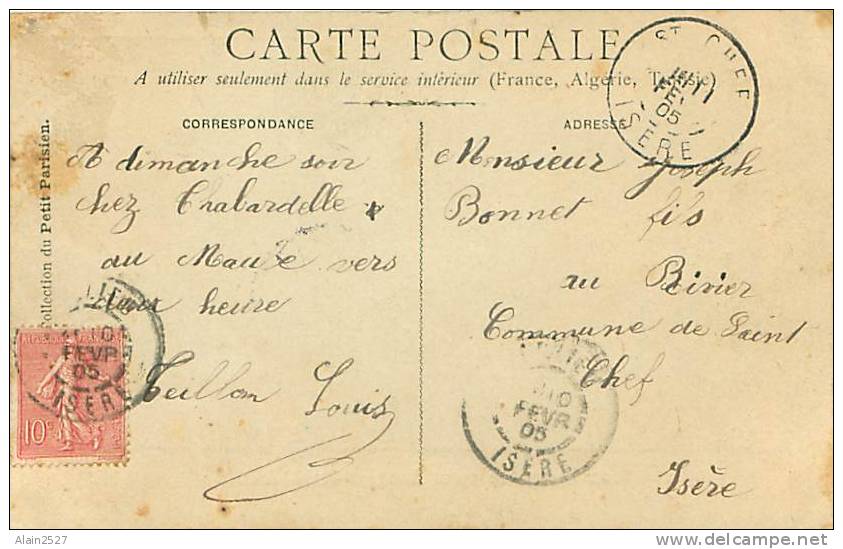 CARTE POSTALE
A utiliser seulement dans le service intérieur (France, Algérie, Tunisie)
CORRESPONDANCE
A dimanche soir
chez Chabardelle
au Mause vers
heure
Teillon Louis
ADRESSE
Monsieur Joseph
Bonnet fils
au Rivier
Commune de Saint
Chef
Isère
Collection du Petit Parisien.
ST CHEF
11
FEV
05
ISERE
10
FEVR
05
ISERE
10
FEVR
05
ISERE
10c
Alain2527
delcampe.net